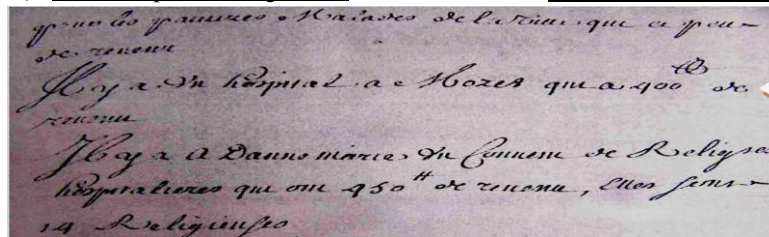 pour les pauvres Malades de la Ville qui a peu
de revenu
Il y a Un hospital a Moret qui a 400 ₶ de
revenu
Il y a A Dannemarie Un Couvent de Religses
hospitalieres qui ont 450 ₶ de revenu, Elles sont
14 Religieuses